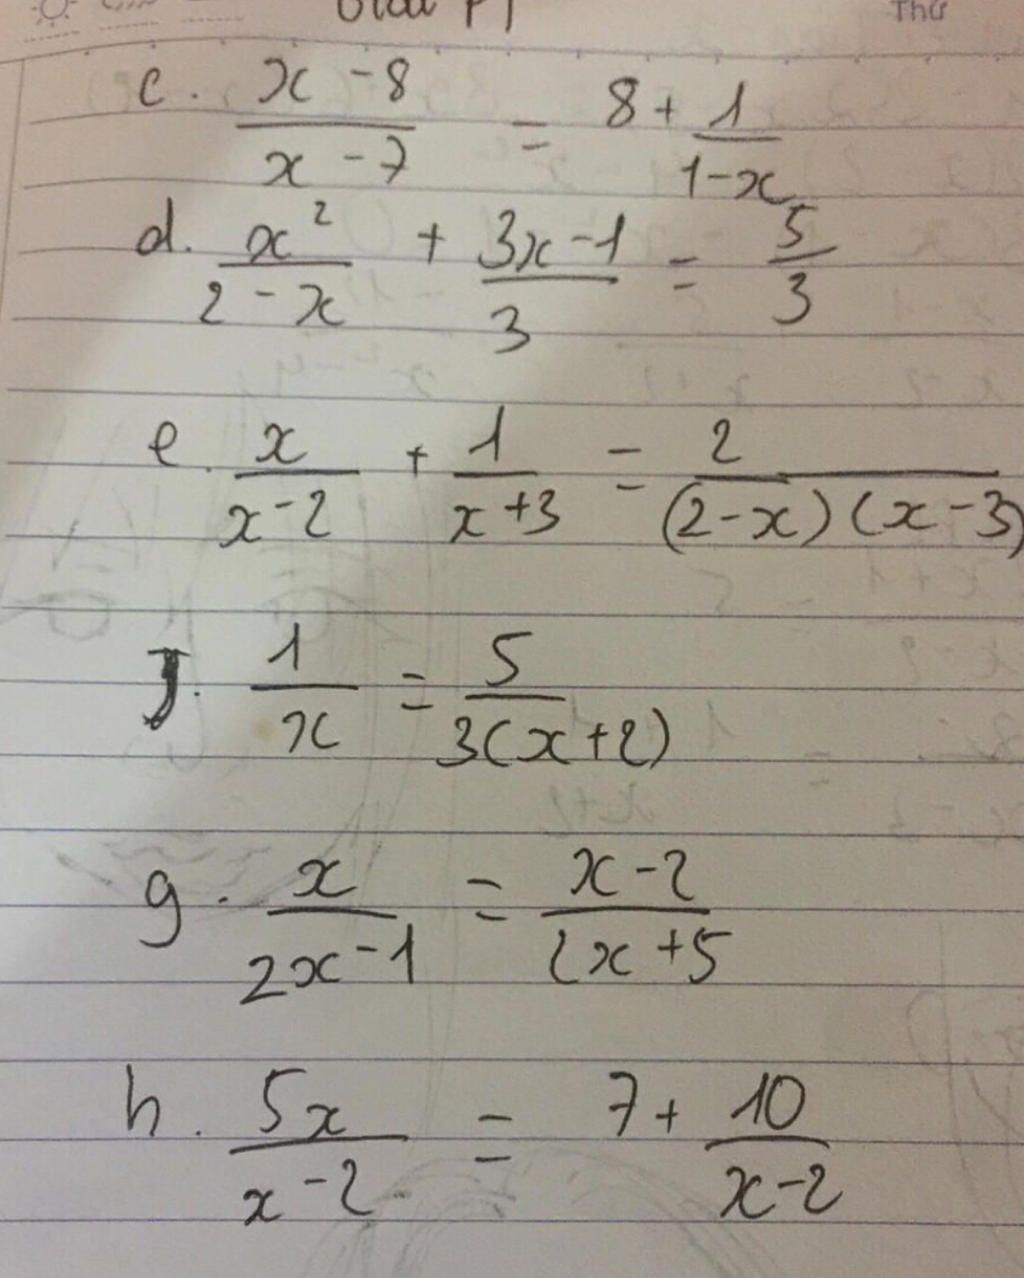 Giải PT
Thứ
c. (x - 8)/(x - 7) = 8 + 1/(1 - x)
d. x²/(2 - x) + (3x - 1)/3 = 5/3
e. x/(x - 2) + 1/(x + 3) = 2/((2 - x)(x - 3))
f. 1/x = 5/(3(x + 2))
g. x/(2x - 1) = (x - 2)/(2x + 5)
h. 5x/(x - 2) = 7 + 10/(x - 2)